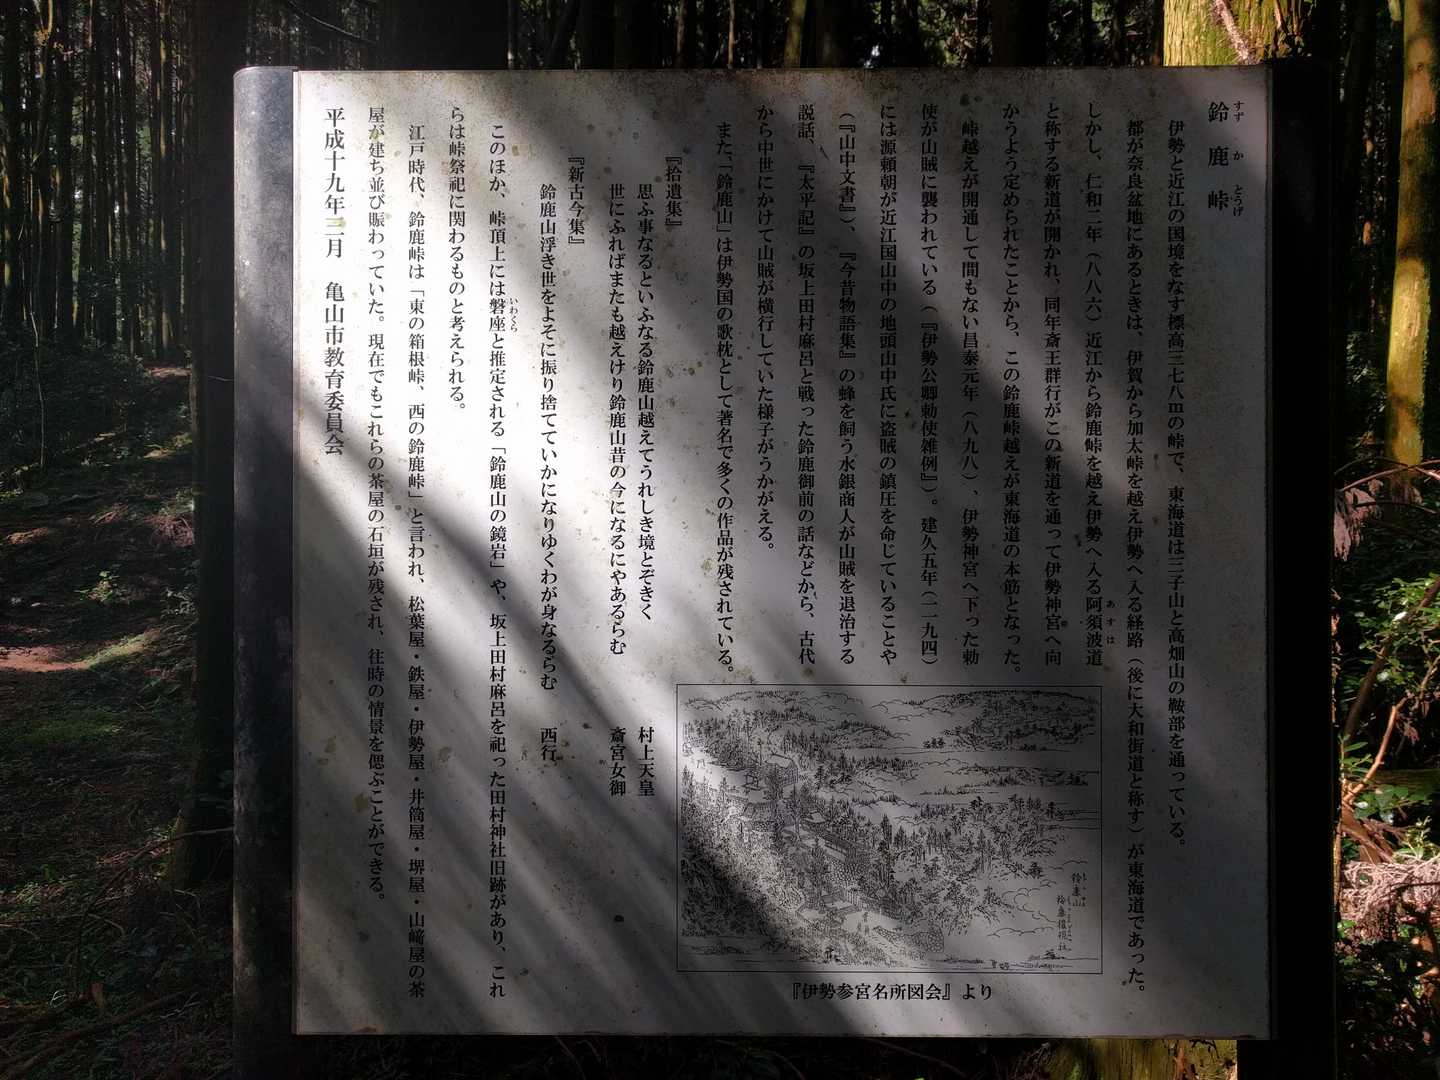 鈴鹿峠
すずかとうげ
伊勢と近江の国境をなす標高三七八mの峠で、東海道は三子山と高畑山の鞍部を通っている。
都が奈良盆地にあるときは、伊賀から加太峠を越え伊勢へ入る経路（後に大和街道と称す）が東海道であった。
しかし、仁和二年（八八六）近江から鈴鹿峠を越え伊勢へ入る阿須波道
あすは
と称する新道が開かれ、同年斎王群行がこの新道を通って伊勢神宮へ向
かうよう定められたことから、この鈴鹿峠越えが東海道の本筋となった。
峠越えが開通して間もない昌泰元年（八九八）、伊勢神宮へ下った勅
使が山賊に襲われている（『伊勢公卿勅使雑例』）。建久五年（一一九四）
には源頼朝が近江国山中の地頭山中氏に盗賊の鎮圧を命じていることや
（『山中文書』）、『今昔物語集』の蜂を飼う水銀商人が山賊を退治する
説話、『太平記』の坂上田村麻呂と戦った鈴鹿御前の話などから、古代
から中世にかけて山賊が横行していた様子がうかがえる。
また、「鈴鹿山」は伊勢国の歌枕として著名で多くの作品が残されている。
『拾遺集』
思ふ事なるといふなる鈴鹿山越えてうれしき境とぞきく　村上天皇
世にふればまたも越えけり鈴鹿山昔の今になるにやあるらむ　斎宮女御
『新古今集』
鈴鹿山浮き世をよそに振り捨てていかになりゆくわが身なるらむ　西行
このほか、峠頂上には磐座と推定される「鈴鹿山の鏡岩」や、坂上田村麻呂を祀った田村神社旧跡があり、これ
いわくら
らは峠祭祀に関わるものと考えられる。
江戸時代、鈴鹿峠は「東の箱根峠、西の鈴鹿峠」と言われ、松葉屋・鉄屋・伊勢屋・井筒屋・堺屋・山﨑屋の茶
屋が建ち並び賑わっていた。現在でもこれらの茶屋の石垣が残され、往時の情景を偲ぶことができる。
平成十九年三月　亀山市教育委員会
鈴鹿山
『伊勢参宮名所図会』より